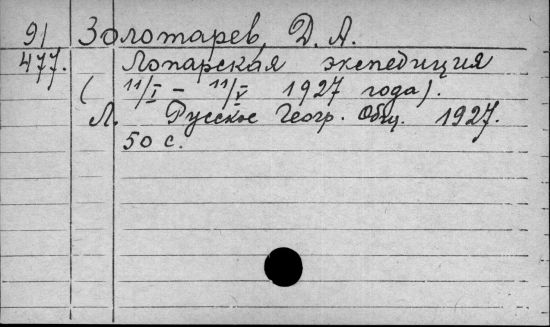 91 Золотарев, Д. А.
477. Лопарская экспедиция
(11/I – 11/V 1927 года).
Л. Русское Геогр. Общ. 1927.
50 с.